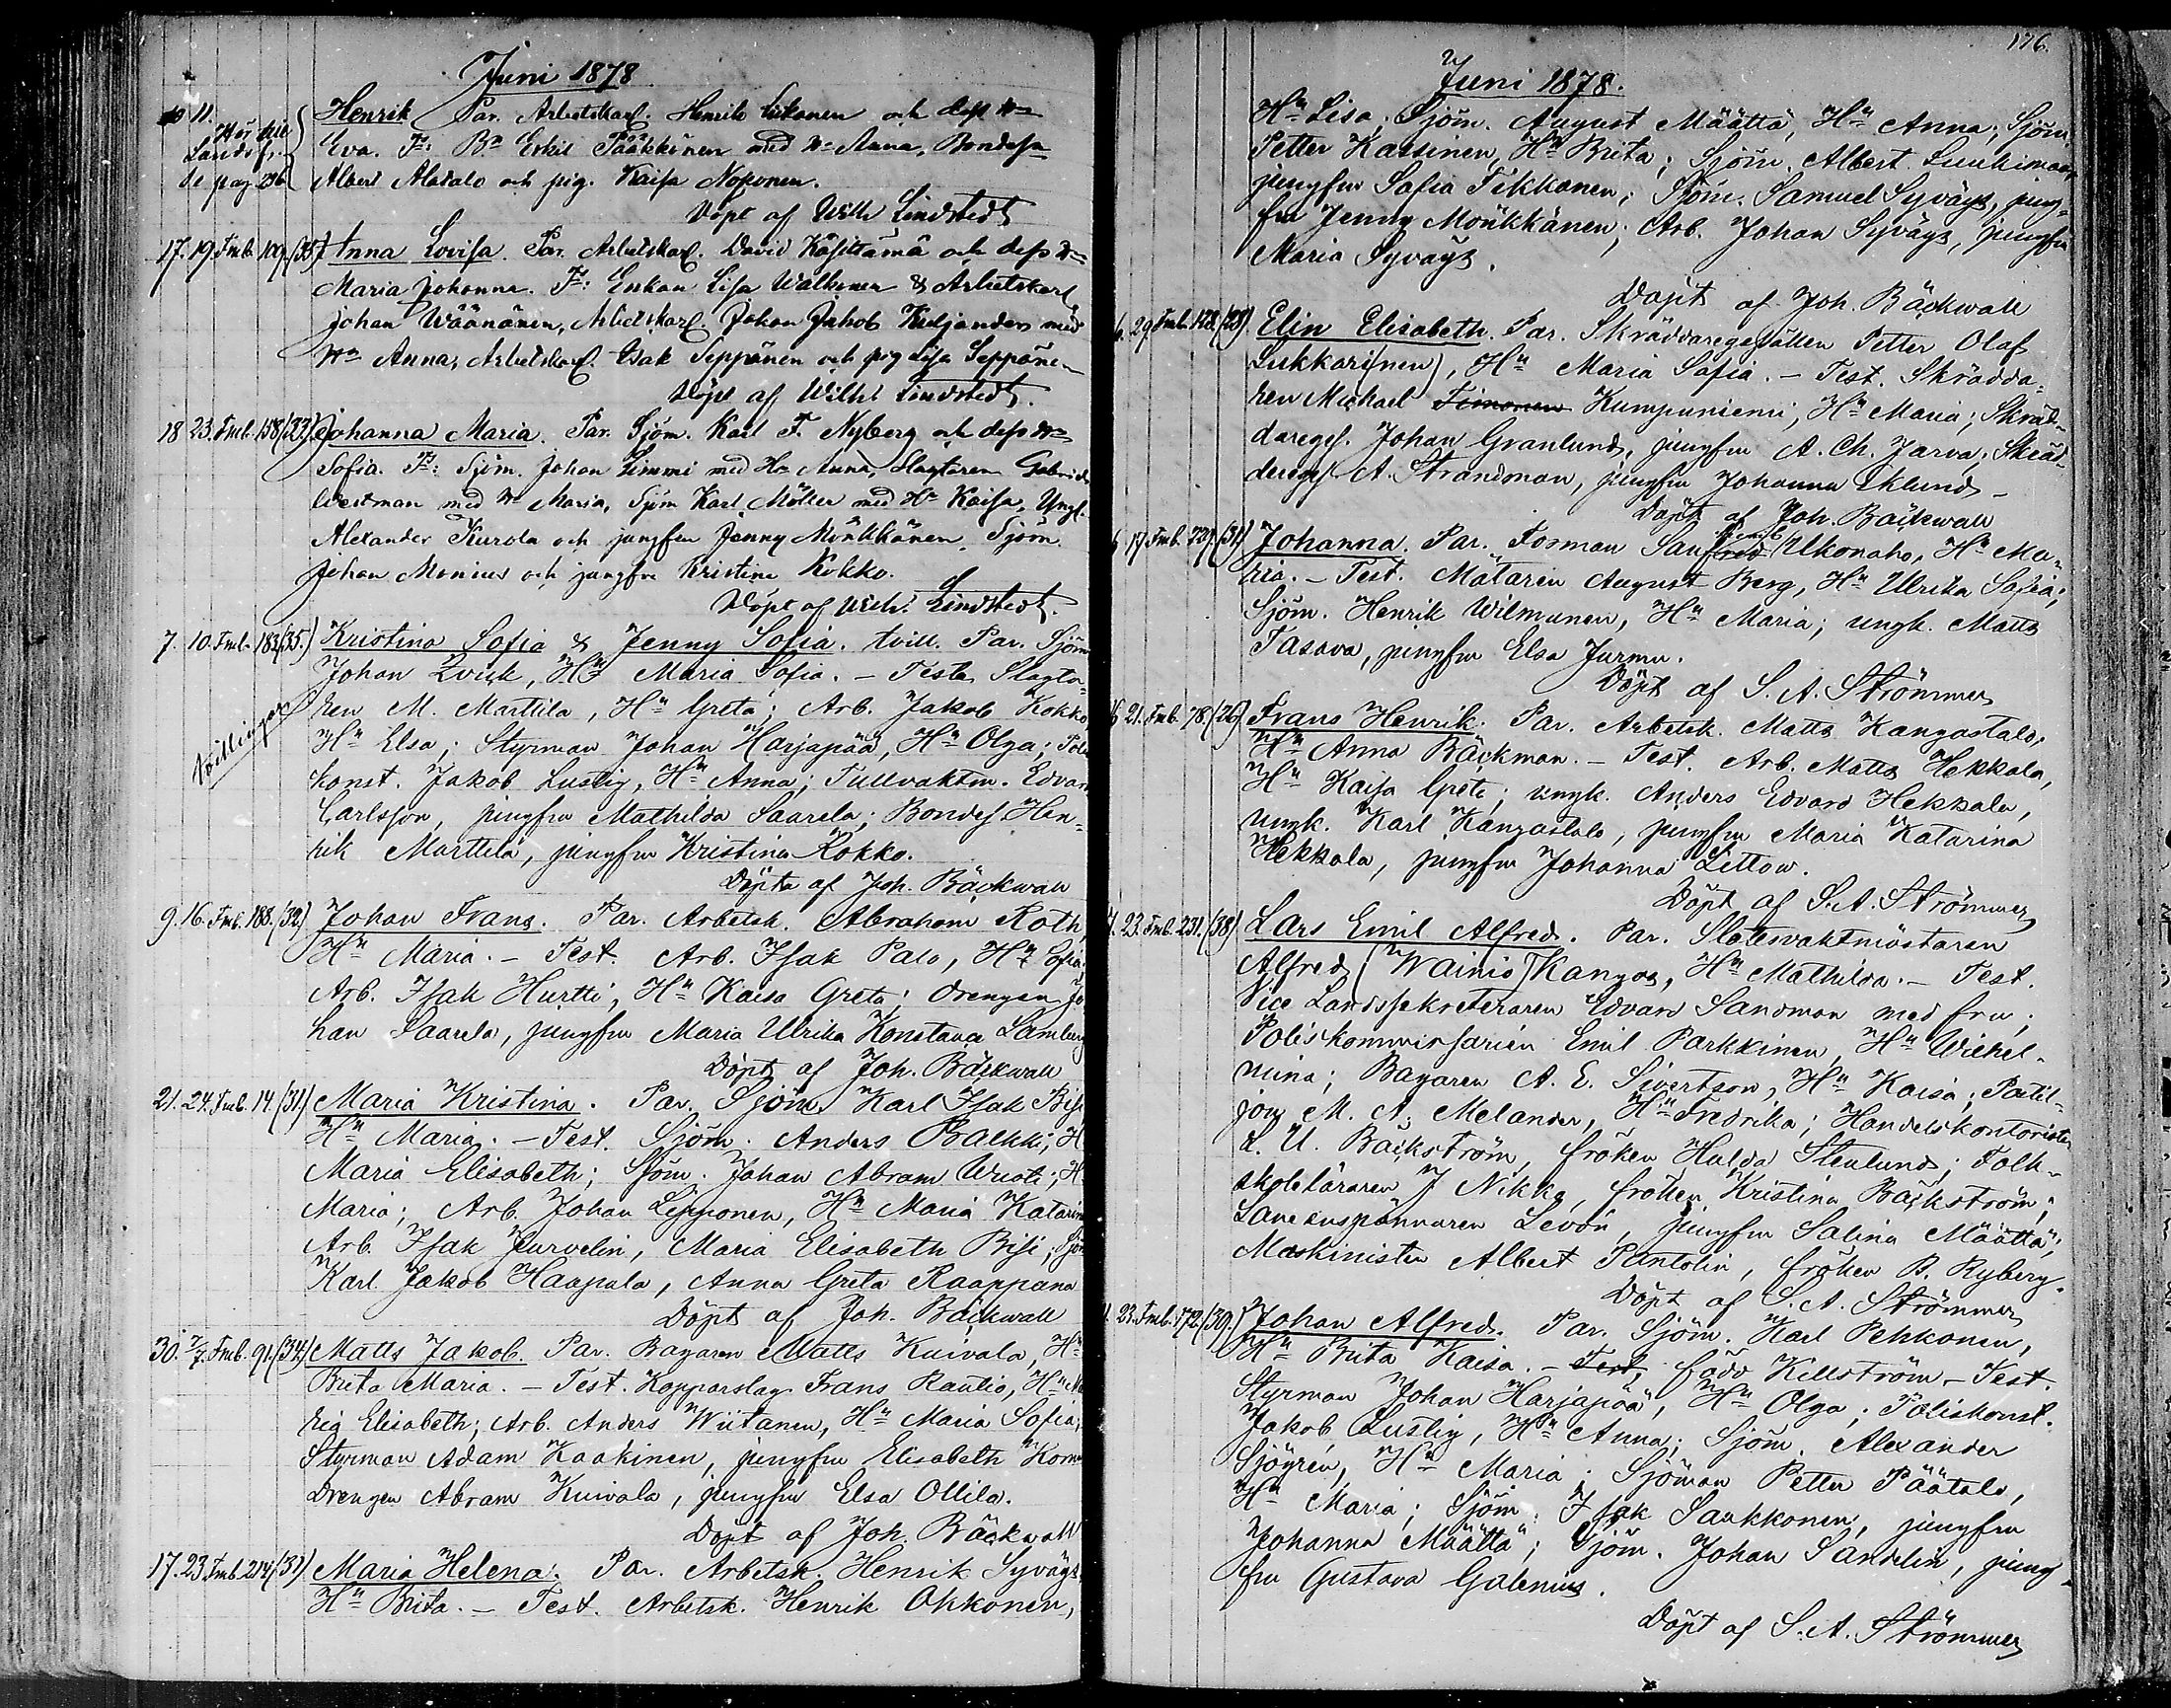 Juni 1878
10 11. Henrik Par. Arbetskarl. Henrik Liikanen och dess Hn
Hör till Eva. Fr: Bn Erkis Pääkkönen med Hn Anna, Bondess
Landsf.
de pag 296 Albert Alatalo och pig. Kaisa Noponen.
Döpt af Wilh Lindstedt
17. 19. Fmb. 109. (35) Anna Lovisa. Par. Arbetskarl. David Käsittämä och dess Hn
Maria Johanna. Fr: Enkan Lisa Walkonen & Arbetskarl
Johan Wäänänen, Arbetskarl. Johan Jakob Keljander med
Hn Anna, Arbetskarl. Isak Seppänen och pig Lisa Seppänen
Döpt af Wilh: Lindstedt.
18 23. Fmb. 158 (33) Johanna Maria. Par. Sjöm. Karl F. Nyberg och dess Hn
Sofia. Fr: Sjöm. Johan Limmi med Hn Anna, Slagtaren Gabriel
Westman med Hn Maria, Sjöm Karl Möller med Hn Kaisa, Yngl.
Alexander Kurola och jungfru Jenny Mönkkönen, Sjöm.
Johan Monius och jungfru Kristina Kokko.
Döpt af Wilh: Lindstedt.
7. 10. Fmb. 183 (35.) Kristina Sofia & Jenny Sofia. tvill. Par. Sjöm
Johan Zvick, Hn Maria Sofia. - Testes Slagta-
Tvillingar
ren M. Marttila, Hn Greta; Arb. Jakob Kokko
Hn Elsa; Styrman Johan Harjapää, Hn Olga; Polis
konst. Jakob Lustig, Hn Anna; Tullvaktm. Edvard
Carlsson, jungfru Mathilda Saarela; Bondes. Hen-
rik Marttila, jungfru Kristina Kokko.
Döpta af Joh. Bäckwall
9. 16. Fmb. 188. (32) Johan Frans. Par. Arbetsk. Abraham Roth,
Hn Maria. - Test. Arb. Isak Palo, Hn Sofia
Arb. Isak Hurtti, Hn Kaisa Greta; Drengen Jo
han Saarela, jungfru Maria Ulrika Konstava Lamberg
Döpt af Joh. Bäckwall
21. 24. Fmb. 14. (31) Maria Kristina. Par. Sjöm. Karl Isak Bisi
Hn Maria. - Test. Sjöm. Anders Pralkki, H
Maria Elisabeth; Sjöm. Johan Abram Wuoti, H.
Maria; Arb. Johan Lepponen, Hn Maria Katarina
Arb. Isak Jurvelin, Maria Elisabeth Bisi; Sjöm
Karl Jakob Haapala, Anna Greta Raappana
Döpt af Joh. Bäckwall
30. 7/7. Fmb. 91. (34) Matts Jakob. Par. Bagaren Matts Kuivala, Hn
Brita Maria. - Test. Kopparslag. Frans Rautio, Hn Ma
ria Elisabeth; Arb. Anders Wiitanen, Hn Maria Sofia;
Styrman Adam Kaakinen, jungfru Elisabeth Komu
Drengen Abram Kuivala, jungfru Elsa Ollila.
Döpt af Joh. Bäckwall
17. 23. Fmb. 214 (31) Maria Helena. Par. Arbetsk. Henrik Syväys,
Hn Brita. - Test. Arbetsk. Henrik Okkonen,
176.
Juni 1878.
Hn Lisa; Sjöm. August Määttä, Hn Anna; Sjöm.
Petter Karsinen, Hn Brita; Sjöm. Albert Luukinen,
jungfru Sofia Tikkanen; Sjöm. Samuel Syväys, jung-
fru Jenny Mönkkönen; Arb. Johan Syväys, jungfru
Maria Syväys.
Döpt af Joh. Bäckwall
6. 29. Fmb. 128. (28). Elin Elisabeth. Par. Skräddaregesällen Petter Olaf
Lukkari(nen), Hn Maria Sofia. - Test. Skrädda-
ren Michael Timonen Kumpuniemi, Hn Maria; Skräd-
dareges. Johan Granlund, jungfru A. Ch. Jarva; Skräd-
dareges A. Strandman, jungfru Johanna Eklund -
Döpt af Joh. Bäckwall
6 17. Fmb. 227. (31) Johanna. Par. Forman Sanfrid Ukonaho, Hn Ma-
ria. - Test. Mätaren August Berg, Hn Ulrika Sofia;
Sjöm. Henrik Wilmunen, Hn Maria; ungk. Matts
Tasava, jungfru Elsa Jurmu.
Döpt af S. A. Strömmer
16 21. Fmb. 78. (26) Frans Henrik. Par. Arbetsk. Matts Kangastalo,
Hn Anna Bäckman. - Test. Arb. Matts Hekkala,
Hn Kaisa Greta; ungk. Anders Edvard Hekkala,
ungk. Karl Kangastalo, jungfru Maria Katarina
Hekkala, jungfru Johanna Littow.
Döpt af S. A. Strömmer
4. 23. Fmb. 231. (38) Lars Emil Alfred. Par. Slottsvaktmästaren
Alfred (Wainio) Kangas, Hn Mathilda. - Test.
Vice Landssekreteraren Edvard Sandman med fru;
Poliskommissarien Emil Parkkinen, Hn Wilhel-
mina; Bagaren A. E. Sivertson, Hn Kaisa; Patil-
jon M. A. Melander, Hn Fredrika; Handelskontoristen
L. U. Bäckström, fröken Hulda Stenlund; Folk-
skoleläraren J Nikka, fröken Kristina Bäckström;
Länsanspannaren Levon, jungfru Salina Määttä;
Maskinisten Albert Pantolin, fröken R. Ryberg.
Döpt af S. A. Strömmer
11. 23. Fmb. 172. (39.) Johan Alfred. Par. Sjöm. Karl Pehkonen,
Hn Brita Kaisa. - Test, född Killström - Test.
Styrman Johan Harjapää, Hn Olga; Poliskonst.
Jakob Lustig, Hn Anna; Sjöm. Alexander
Sjögren, Hn Maria; Sjöman Petter Päätalo,
Hn Maria; Sjöm. Isak Saukkonen, jungfru
Johanna Määttä; Sjöm. Johan Sandelin, jung-
fru Gustava Galenius.
Döpt af S. A. Strömmer